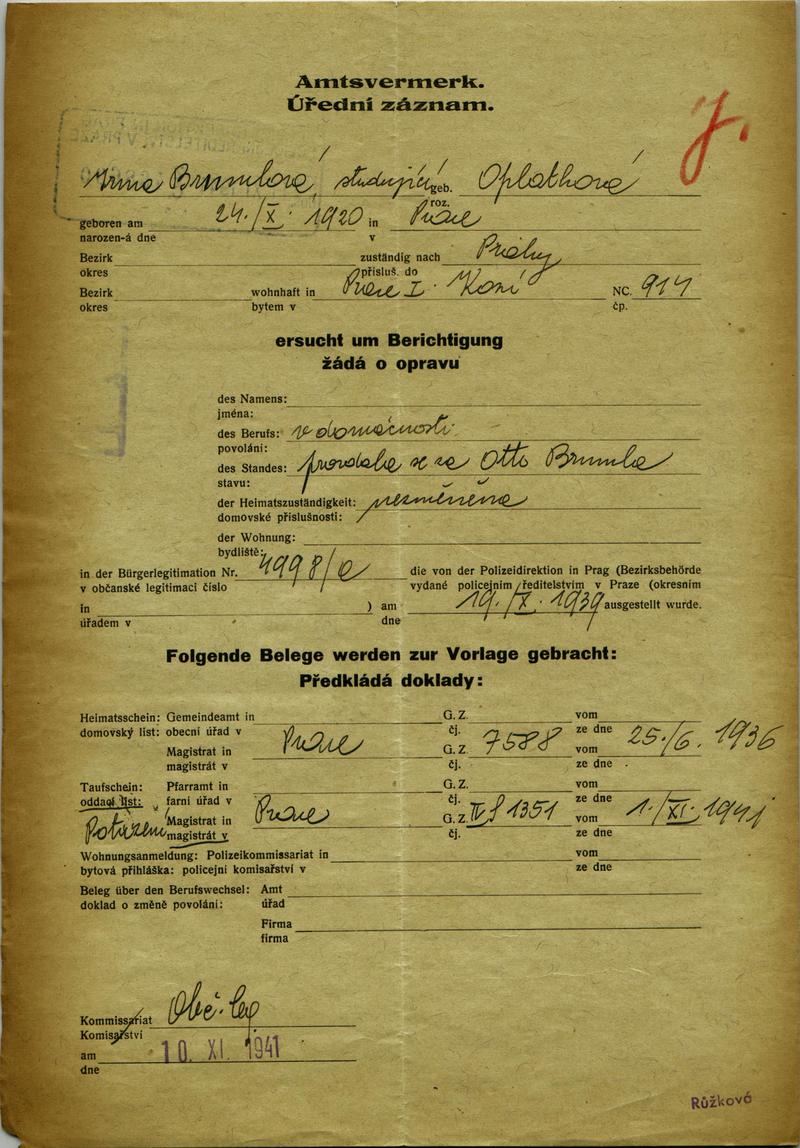 Amtsvermerk.
Úřední záznam.
J.
Irma Brumlová, studující geb. Oplatková
roz.
geboren am 24./X. 1920 in Praze
narozen-á dne v
Bezirk zuständig nach Prahy
okres přísluš. do
Bezirk wohnhaft in Praze I. Kozí NC. 914
okres bytem v čp.
ersucht um Berichtigung
žádá o opravu
des Namens:
jména:
des Berufs: v domácnosti
povolání:
des Standes: provdala se za Otto Brumla
stavu:
der Heimatszuständigkeit: nezměněna
domovské příslušnosti:
der Wohnung:
bydliště:
in der Bürgerlegitimation Nr. 4998/ die von der Polizeidirektion in Prag (Bezirksbehörde
v občanské legitimaci číslo vydané policejním ředitelstvím v Praze (okresním
in ) am 19./X. 1939 ausgestellt wurde.
úřadem v dne
Folgende Belege werden zur Vorlage gebracht:
Předkládá doklady:
Heimatsschein: Gemeindeamt in G. Z. vom
domovský list: obecní úřad v čj. ze dne
Magistrat in Praze G. Z. 7588 vom 25./6. 1936
magistrát v čj. ze dne
Taufschein: Pfarramt in G. Z. vom
oddací list: farní úřad v čj. ze dne
Potvrzení Magistrat in Praze G. Z. 1351 vom 1./XI. 1941
magistrát v čj. ze dne
Wohnungsanmeldung: Polizeikommissariat in vom
bytová přihláška: policejní komisařství v ze dne
Beleg über den Berufswechsel: Amt
doklad o změně povolání: úřad
Firma
firma
Kommissariat Obč. leg
Komisařství
am 10. XI. 1941
dne
Růžková